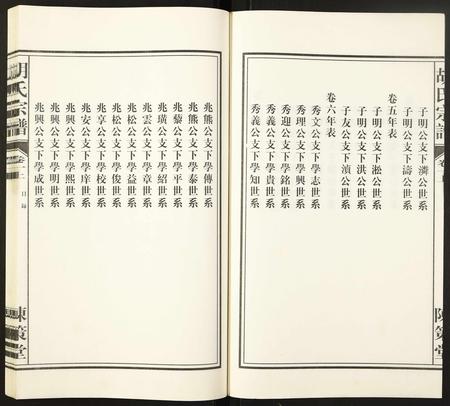 胡氏宗譜
卷一
陳策堂
子明公支下濟公世系
子明公支下濤公世系
卷五年表
子明公支下淞公世系
子明公支下洪公世系
子友公支下滇公世系
卷六年表
秀文公支下學志世系
秀理公支下學興世系
秀迎公支下學銘世系
秀義公支下學貴世系
秀義公支下學知世系
兆熊公支下學傳世系
兆熊公支下學泰世系
兆藜公支下學平世系
兆璜公支下學紹世系
兆雲公支下學章世系
兆松公支下學益世系
兆松公支下學俊世系
兆享公支下學校世系
兆安公支下學庠世系
兆興公支下學熙世系
兆興公支下學明世系
兆興公支下學成世系
胡氏宗譜
卷一
目錄
陳策堂